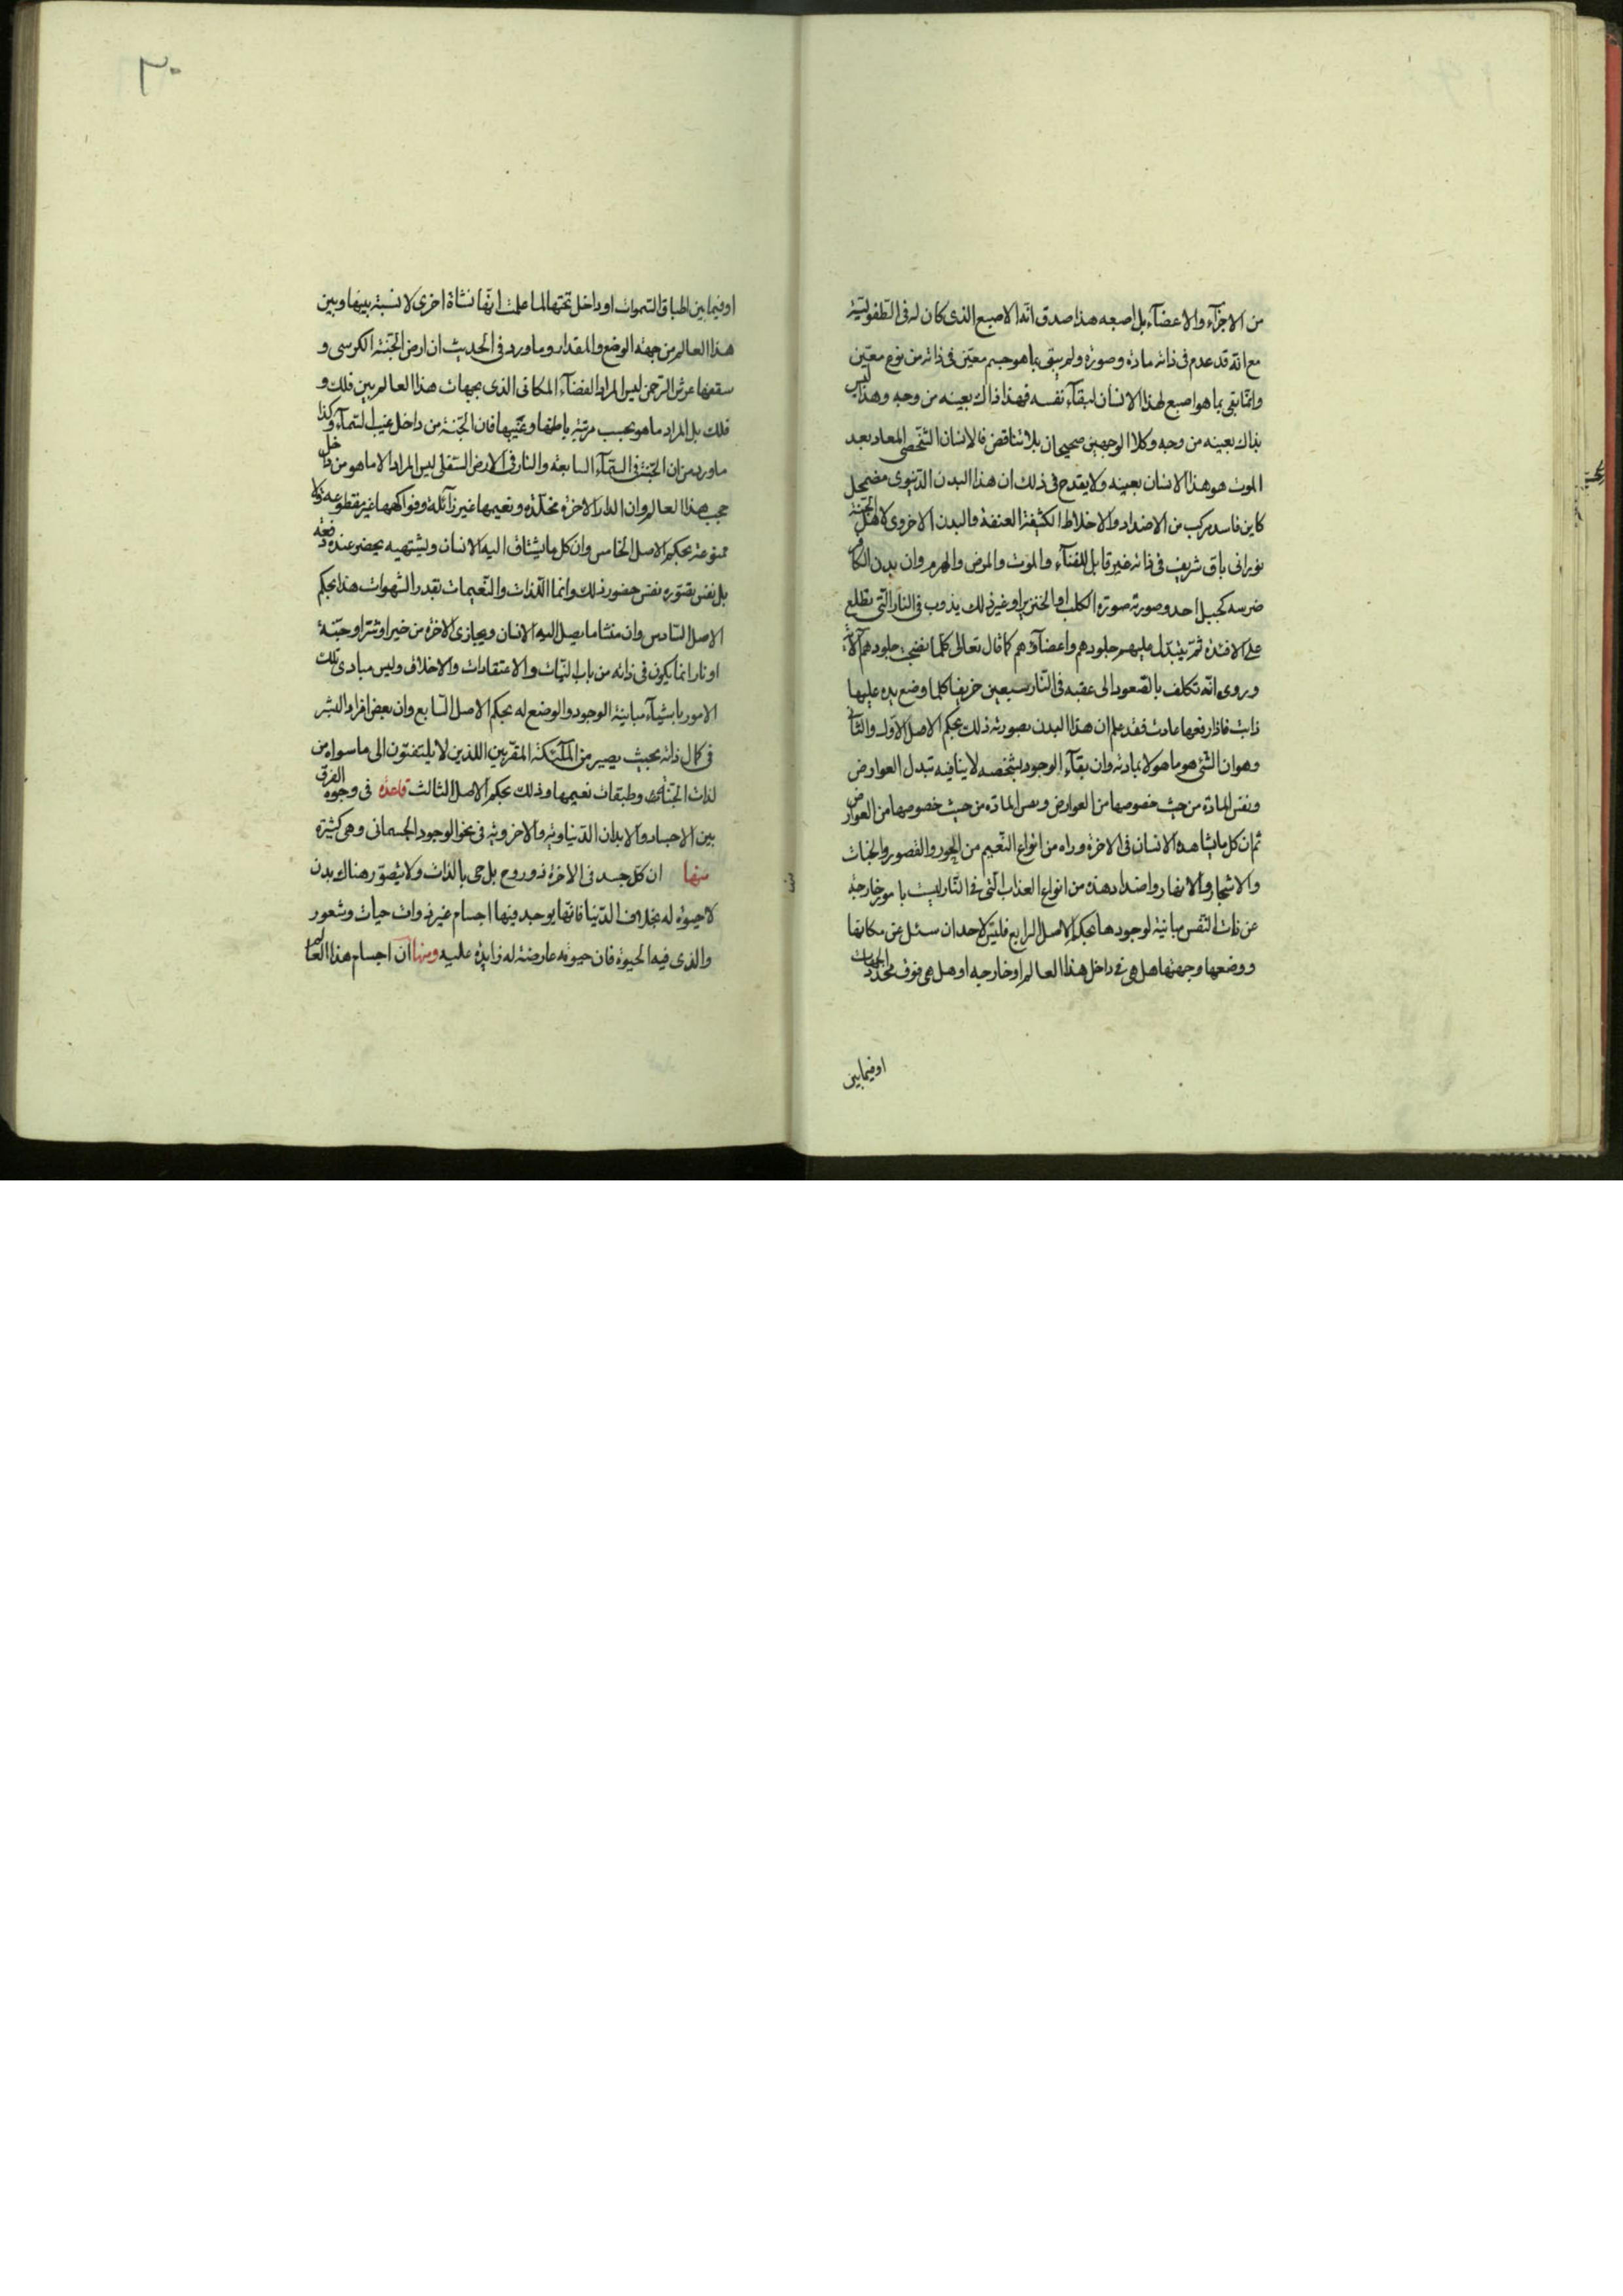 من الاجزآء والاعضآء بل اصبعه هذا صدق انّه الاصبع الذى كان له فى الطّفوليّة
مع انّه قد عدم فى ذاته مادة وصورة ولم يبق بما هو جسم معيّن فى ذاته من نوع معيّن
وانّما بقى بما هو اصبع لهذا الانسان لبقآء نفسه فهذا ذاك بعينه من وجه وهذا ليس
بذاك بعينه من وجه وكلا الوجهين صحيحان بلا تناقض فالانسان الشّخصى المعاد بعد
الموت هو هذا الانسان بعينه ولا يقدح فى ذلك ان هذا البدن الدّنيوى مضمحل
كاين فاسد مركب من الاضداد والاخلاط الكثيفة العنفة والبدن الاخروى لاهل الجنّة
نورانى باق شريف فى ذاته غير قابل للفنآء والموت والمرض والهرم وان بدن الكافر
ضرسه كجبل احد وصورته صورة الكلب او الخنزير او غير ذلك يذوب فى النار التى تطلع
على الافئدة ثمّ يتبدّل عليهم جلودهم واعضآؤهم كما قال تعالى كلما نضجت جلودهم الآية
وروى انّه تكلف بالصّعود الى عقبه فى النّار سبعين خريفا كلما وضع يده عليها
ذابت فاذا رفعها عادت فقد علم ان هذا البدن بصورته ذلك بحكم الاصل الاوّل والثّانى
وهو ان الشّئ هو ما هو لا بمادته وان بقآء الوجود بشخصه لا ينافيه تبدل العوارض
ونفس المادّة من حيث خصوصها من العوارض ونفس المادّة من حيث خصوصها من العوارض
ثم ان كل ما يشاهده الانسان فى الاخرة وراه من انواع النّعيم من الحور والقصور والجنات
والاشجار والانهار واضداد هذه من انواع العذاب الّتى فى النّار ليست بامور خارجة
عن ذات النّفس مباينة لوجودها بحكم الاصل الرابع فليس لاحد ان سئل عن مكانها
ووضعها وجهتها هل هى فى داخل هذا العالم او خارجه او هل هى فوق محدد الجهات
او فيما بين
٣٠
او فيما بين اطباق السّموات او داخل تحتها لما علمت انّها نشاة اخرى لا نسبة بينها وبين
هذا العالم من جهة الوضع والمقدار وما ورد فى الحديث ان ارض الجنّة الكرسى و
سقفها عرش الرحمن ليس المراد الفضآء المكانى الذى بجهات هذا العالم بين فلك و
فلك بل المراد ما هو بحسب مرتبة باطنها وغيبها فان الجنّة من داخل غيب السّمآء وكذا
ما ورد من ان الجنّة فى السّمآء السابعة والنار فى الارض السّفلى ليس المراد الا ما هو من داخل
حجب هذا العالم وان الدار الاخرة مخلّدة ونعيمها غير زآئلة وفواكهها غير مقطوعة ولا
ممنوعة بحكم الاصل الخامس وان كل ما يشتاق اليه الانسان ويشتهيه يحضر عنده دفعة
بل نفس تصّوره نفس حضور ذلك وانما اللّذات والنّعيمات بقدر الشّهوات هذا بحكم
الاصل السّادس وان منشا ما يصل اليه الانسان ويجازى الاخرة من خير او شرّ او جنّة
او نار انما يكون فى ذاته من باب النّيات والاعتقادات والاخلاق وليس مبادى تلك
الامور باشيآء مباينة الوجود والوضع له بحكم الاصل السّابع وان بعض افراد البشر
فى كمال ذاته بحيث يصير من الملآئكة المقرّبين اللذين لا يلتفتون الى ما سواه من
لذات الجنّات وطبقات نعيمها وذلك بحكم الاصل الثالث قاعدة فى وجوه الفرق
بين الاجساد والابدان الدّنياوية والاخروية فى نحو الوجود الجسمانى وهى كثيرة
منها ان كلّ جسد فى الاخرة ذو روح بل حى بالذات ولا يتصوّر هناك بدن
لا حيوة له بخلاف الدّنيا فانّها يوجد فيها اجسام غير ذوات حيات وشعور
والذى فيه الحيوة فان حيوته عارضة له زايدة عليه ومنها ان اجسام هذا العالم